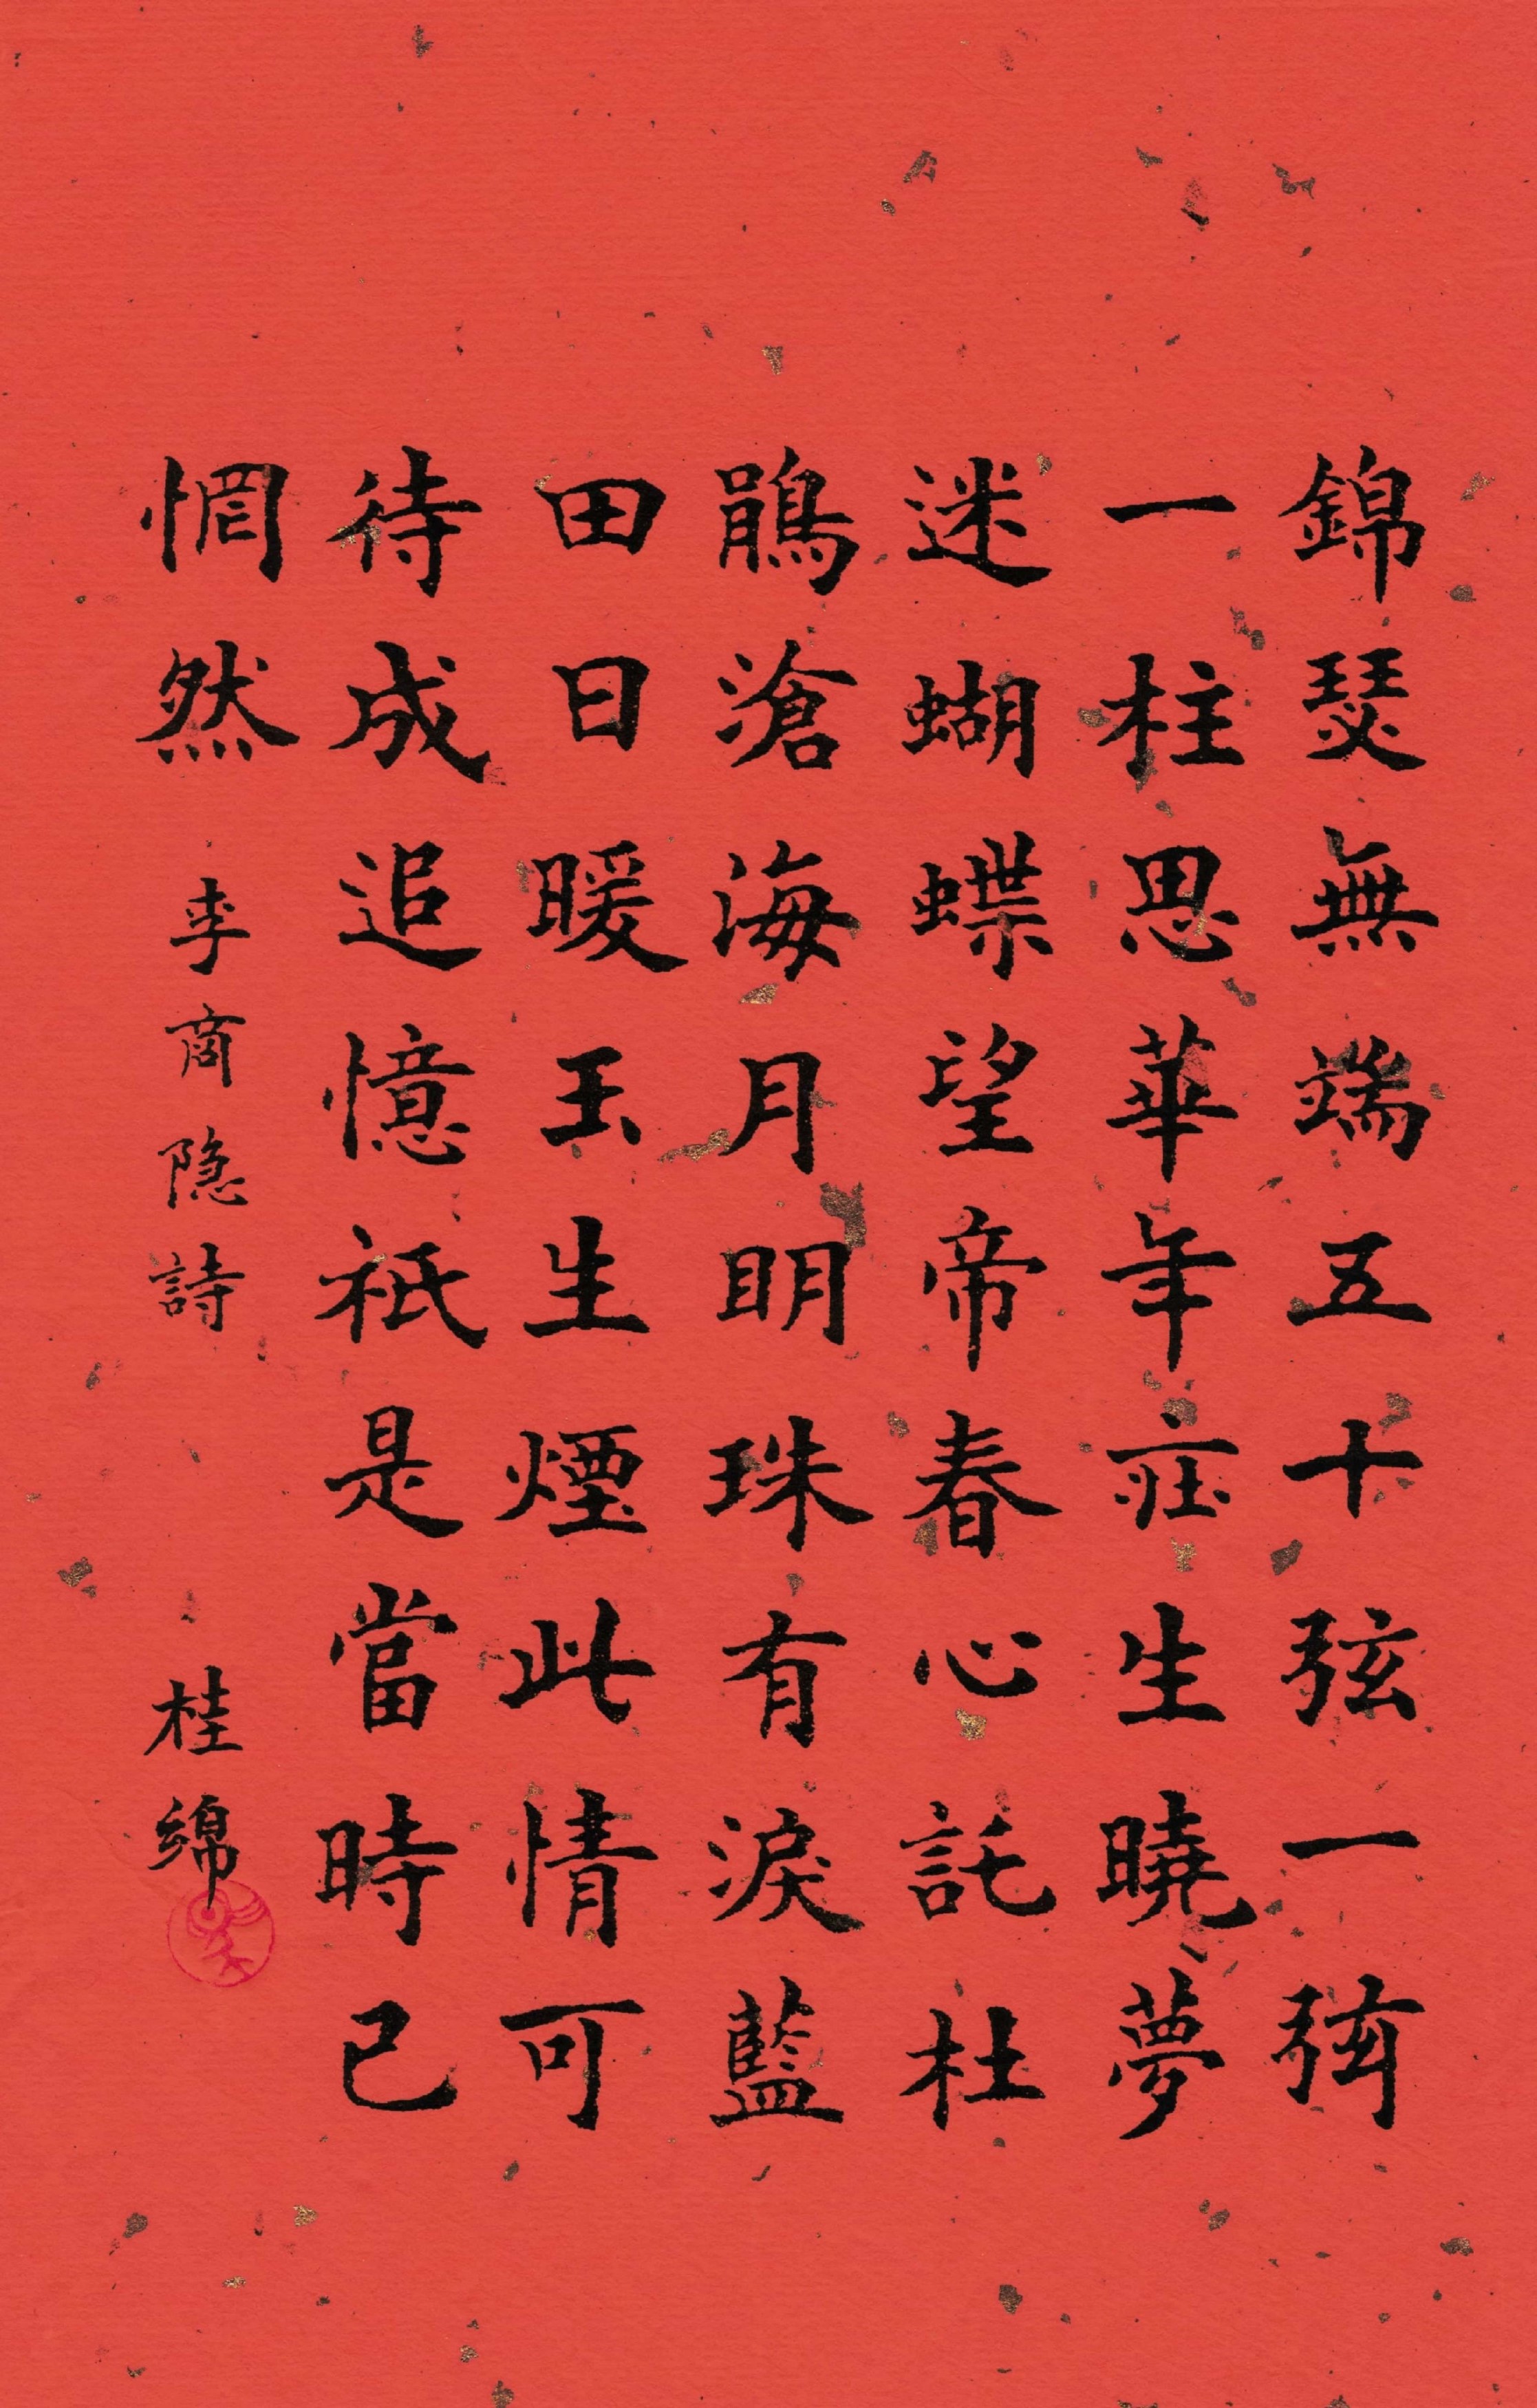 錦瑟無端五十弦一弦
一柱思華年莊生曉夢
迷蝴蝶望帝春心託杜
鵑滄海月明珠有淚藍
田日暖玉生煙此情可
待成追憶祇是當時已
惘然
李商隐詩
桂綿